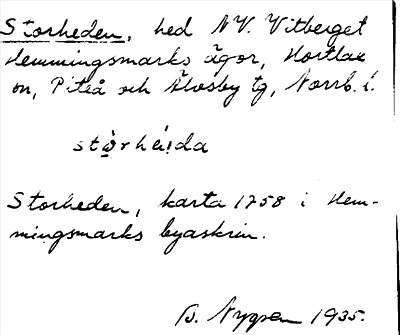 Storheden, hed NV. Vitberget
Hemmingsmarks ägor, Hortlax
sn, Piteå och Älvsby tg, Norrb. l.
stòrhéi̯da
Storheden, karta 1758 i Hem-
mingsmarks byaskrin.
B. Nygren 1935.